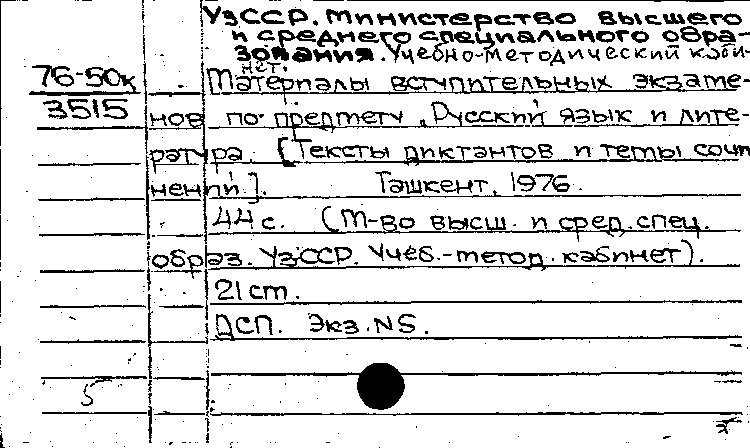 УзССР. Министерство высшего
и среднего специального обра-
зования. Учебно-методический каби-
нет.
76-50к Материалы вступительных экзаме-
3515 нов по предмету „Русский язык и лите-
ратура. [Тексты диктантов и темы сочи
нений]. Ташкент, 1976.
44 с. (М-во высш. и сред. спец.
образ. УзССР. Учеб.-метод. кабинет).
21 cm.
ДСП. Экз. N5.
5